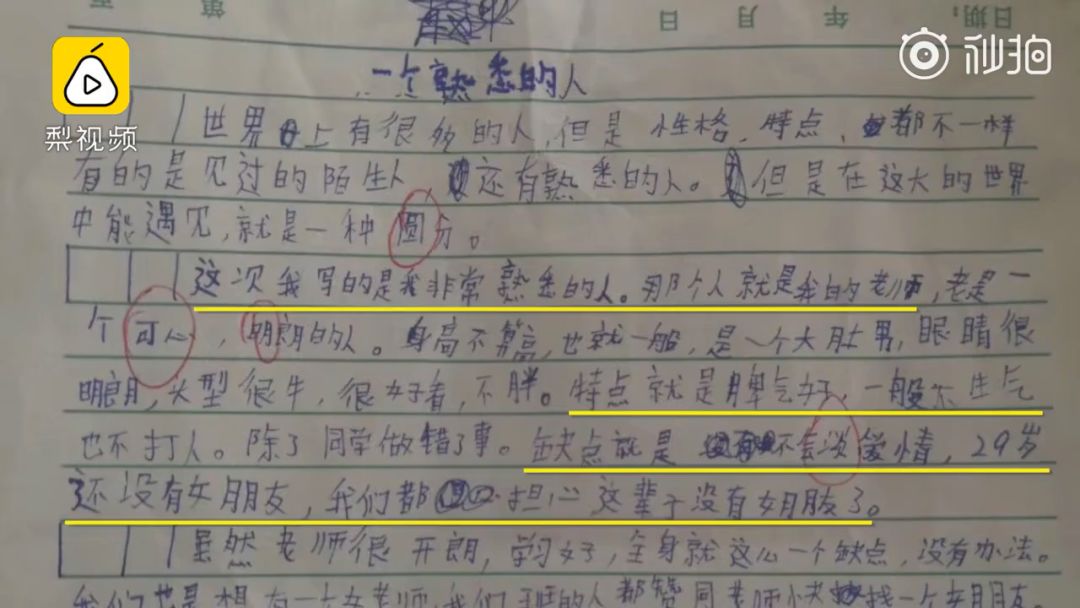 第 年 月 日 日期:
梨视频
秒拍
一个熟悉的人
世界上有很多的人,但是性格、特点、都不一样
有的是见过的陌生人 还有熟悉的人。但是在这大的世界
中能遇见,就是一种圆分。
这次我写的是我非常熟悉的人。那个人就是我的老师,老是一
个可心,明朗的人。身高不算高,也就一般,是一个大肚男,眼睛很
明朗,头型很牛,很好看,不胖。特点就是脾气好,一般不生气
也不打人。除了同学做错了事。缺点就是 不会谈爱情,29岁
还没有女朋友,我们都 担心这辈子没有女朋友了。
虽然老师很开朗,学习好,全身就这么一个缺点,没有办法。
我们也是想有一个女老师,我们班的人都赞同老师 找一个女朋友